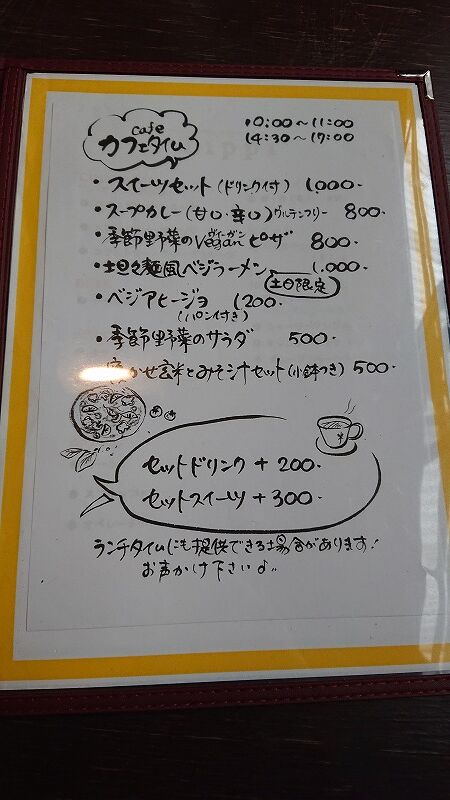 cafe
カフェタイム
10:00~11:00
14:30~17:00
・スイーツセット(ドリンク付) 1,000-
・スープカレー(甘口・辛口)グルテンフリー 800-
・季節野菜のveganピザ 800-
ヴィーガン
・坦々麺風ベジラーメン 1,000-
土日限定
・ベジアヒージョ 1,200-
(パン付き)
・季節野菜のサラダ 500-
かせ玄米とみそ汁セット(小鉢つき) 500-
セットドリンク+200-
セットスイーツ+300-
ランチタイムにも提供できる場合があります!
お声かけ下さいよ